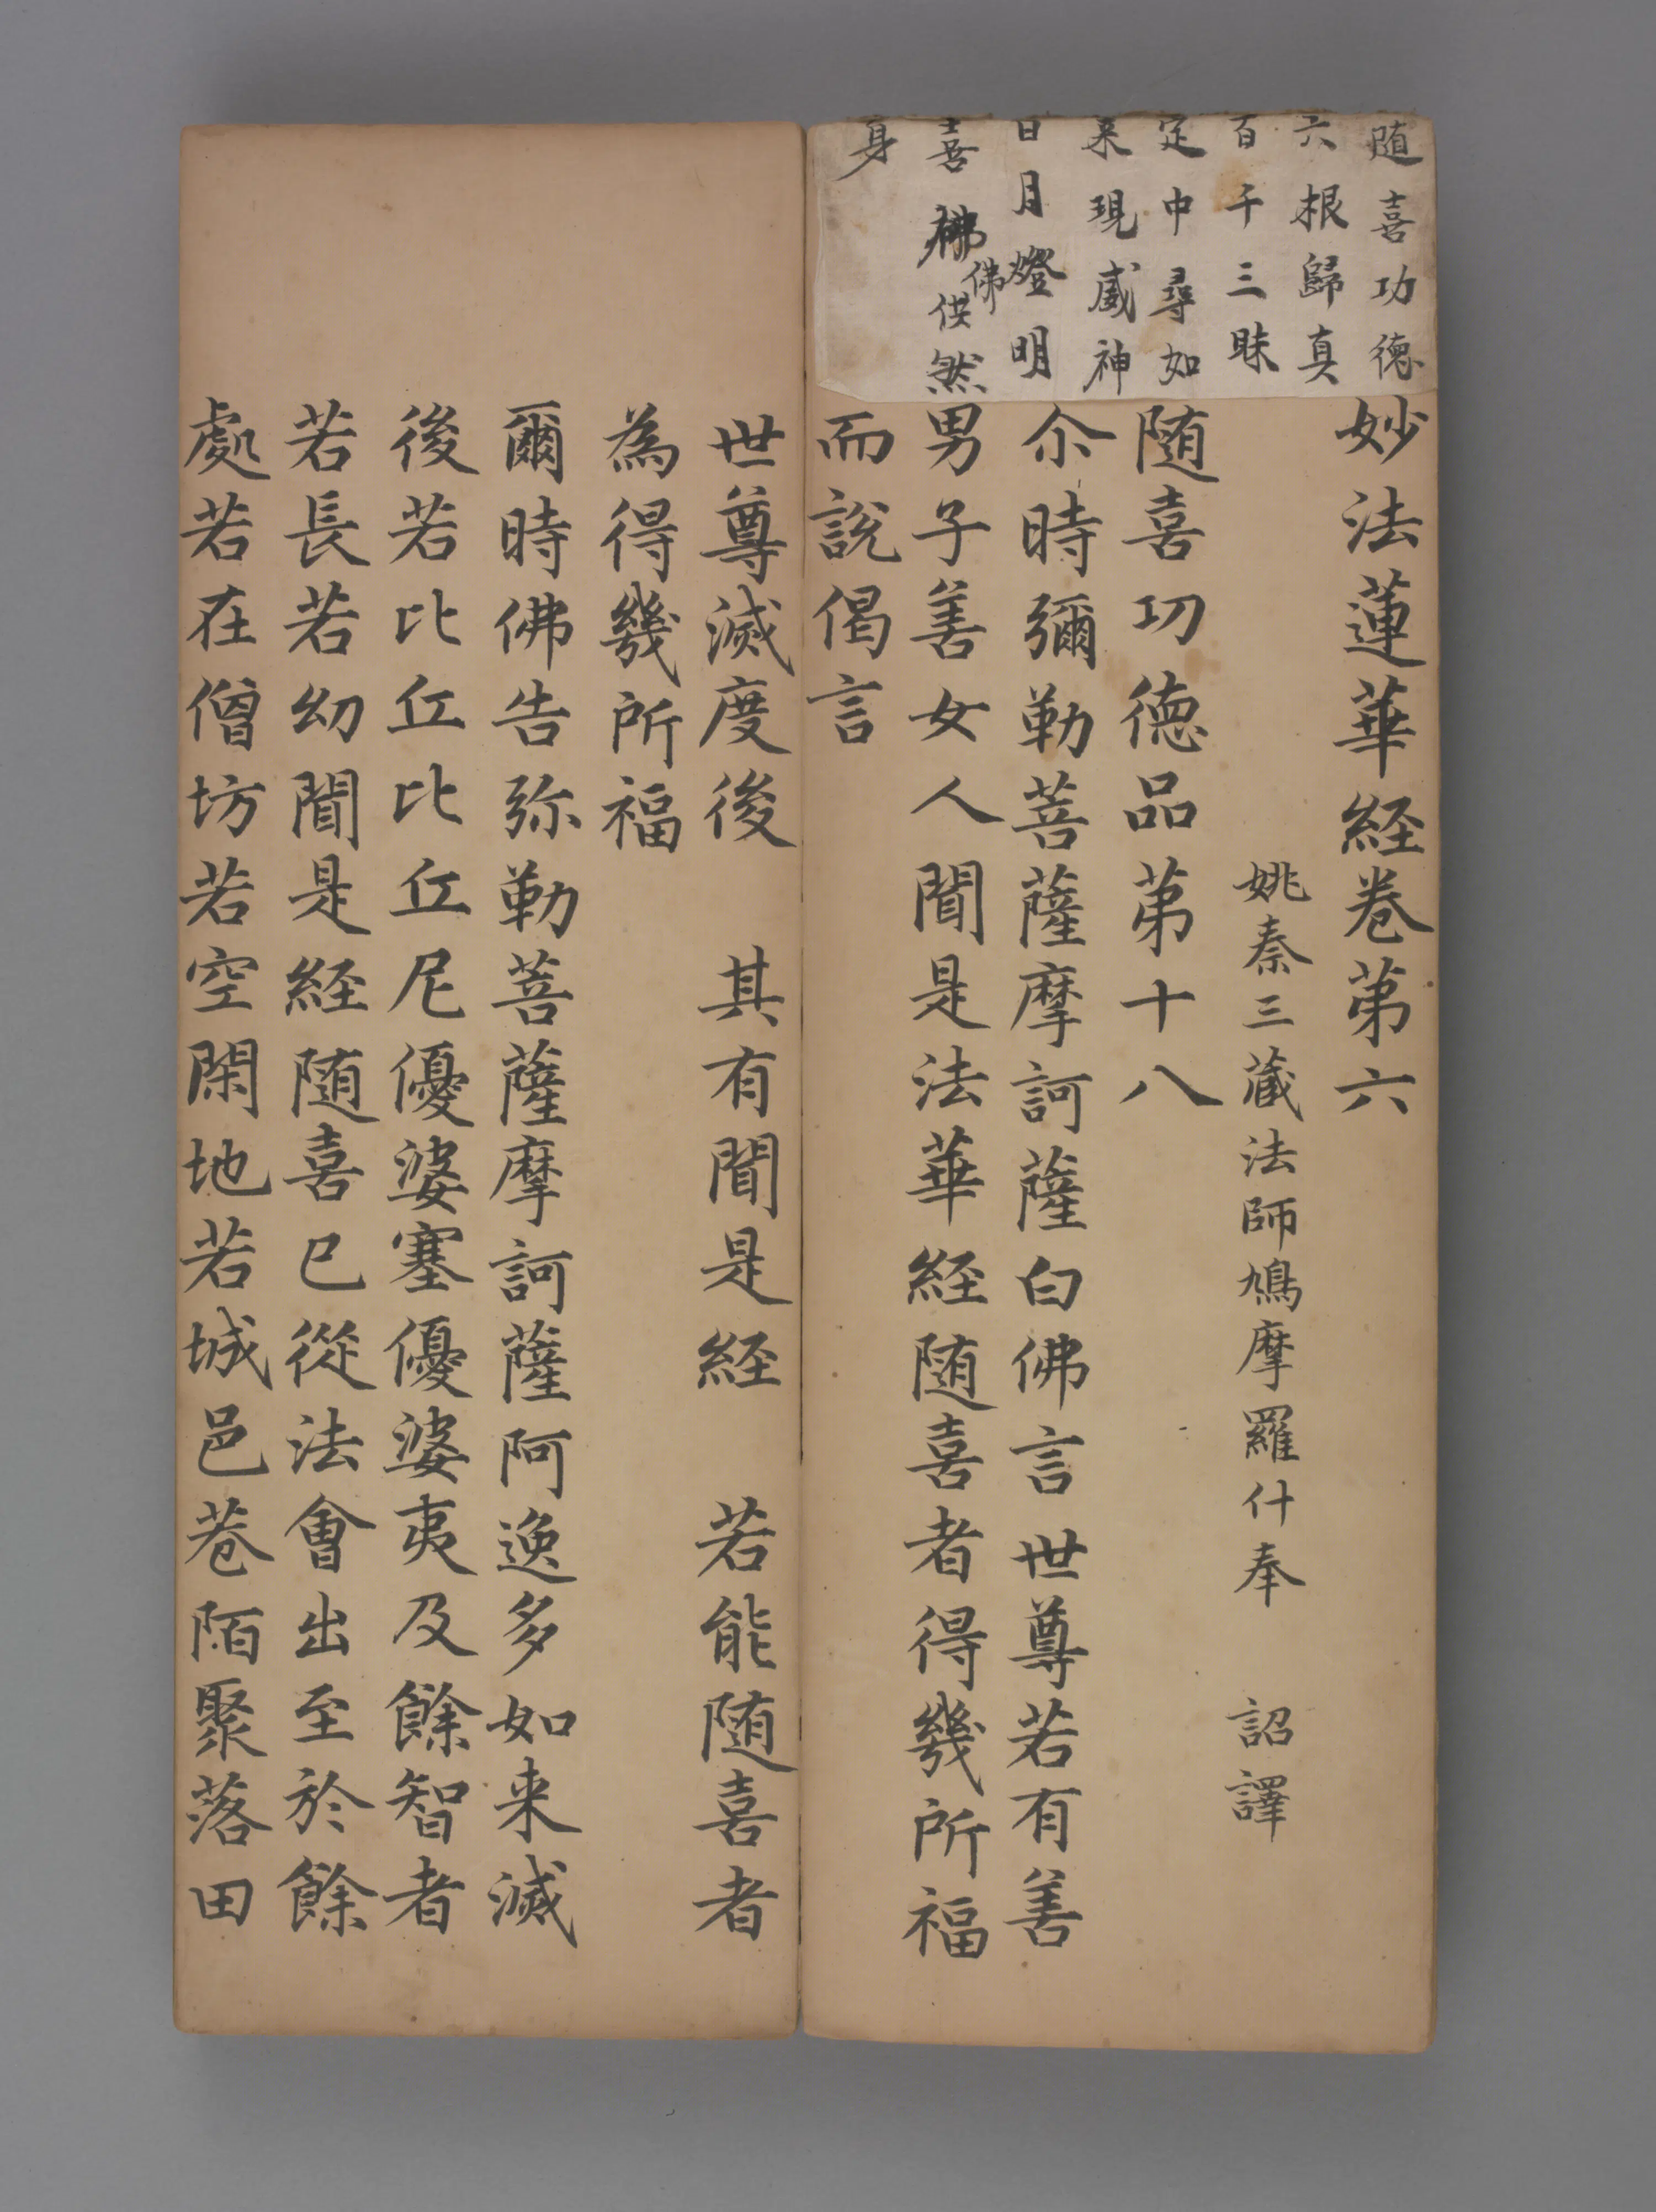 随喜功德
六根歸真
百千三昧
定中尋如
来現威神
日月燈明
佛
喜供然
身
妙法蓮華経卷第六
姚秦三藏法師鳩摩羅什奉　詔譯
随喜功德品第十八
尒時彌勒菩薩摩訶薩白佛言世尊若有善
男子善女人聞是法華経随喜者得幾所福
而說偈言
世尊滅度後　其有聞是経　若能随喜者
為得幾所福
爾時佛告弥勒菩薩摩訶薩阿逸多如来滅
後若比丘比丘尼優婆塞優婆夷及餘智者
若長若幼聞是経随喜已從法會出至於餘
處若在僧坊若空閑地若城邑巷陌聚落田